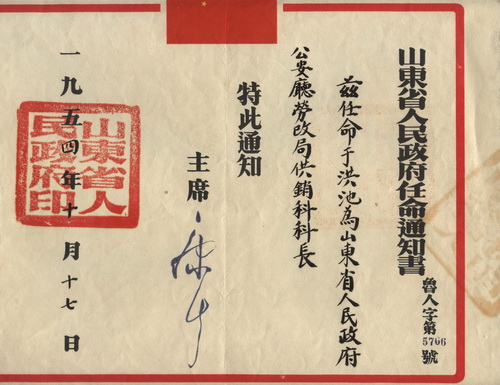 山東省人民政府任命通知書
魯人字第5766號
茲任命于洪池為山東省人民政府
公安廳勞改局供銷科科長
特此通知
主席
一九五四年十月十七日
山東省人民政府印